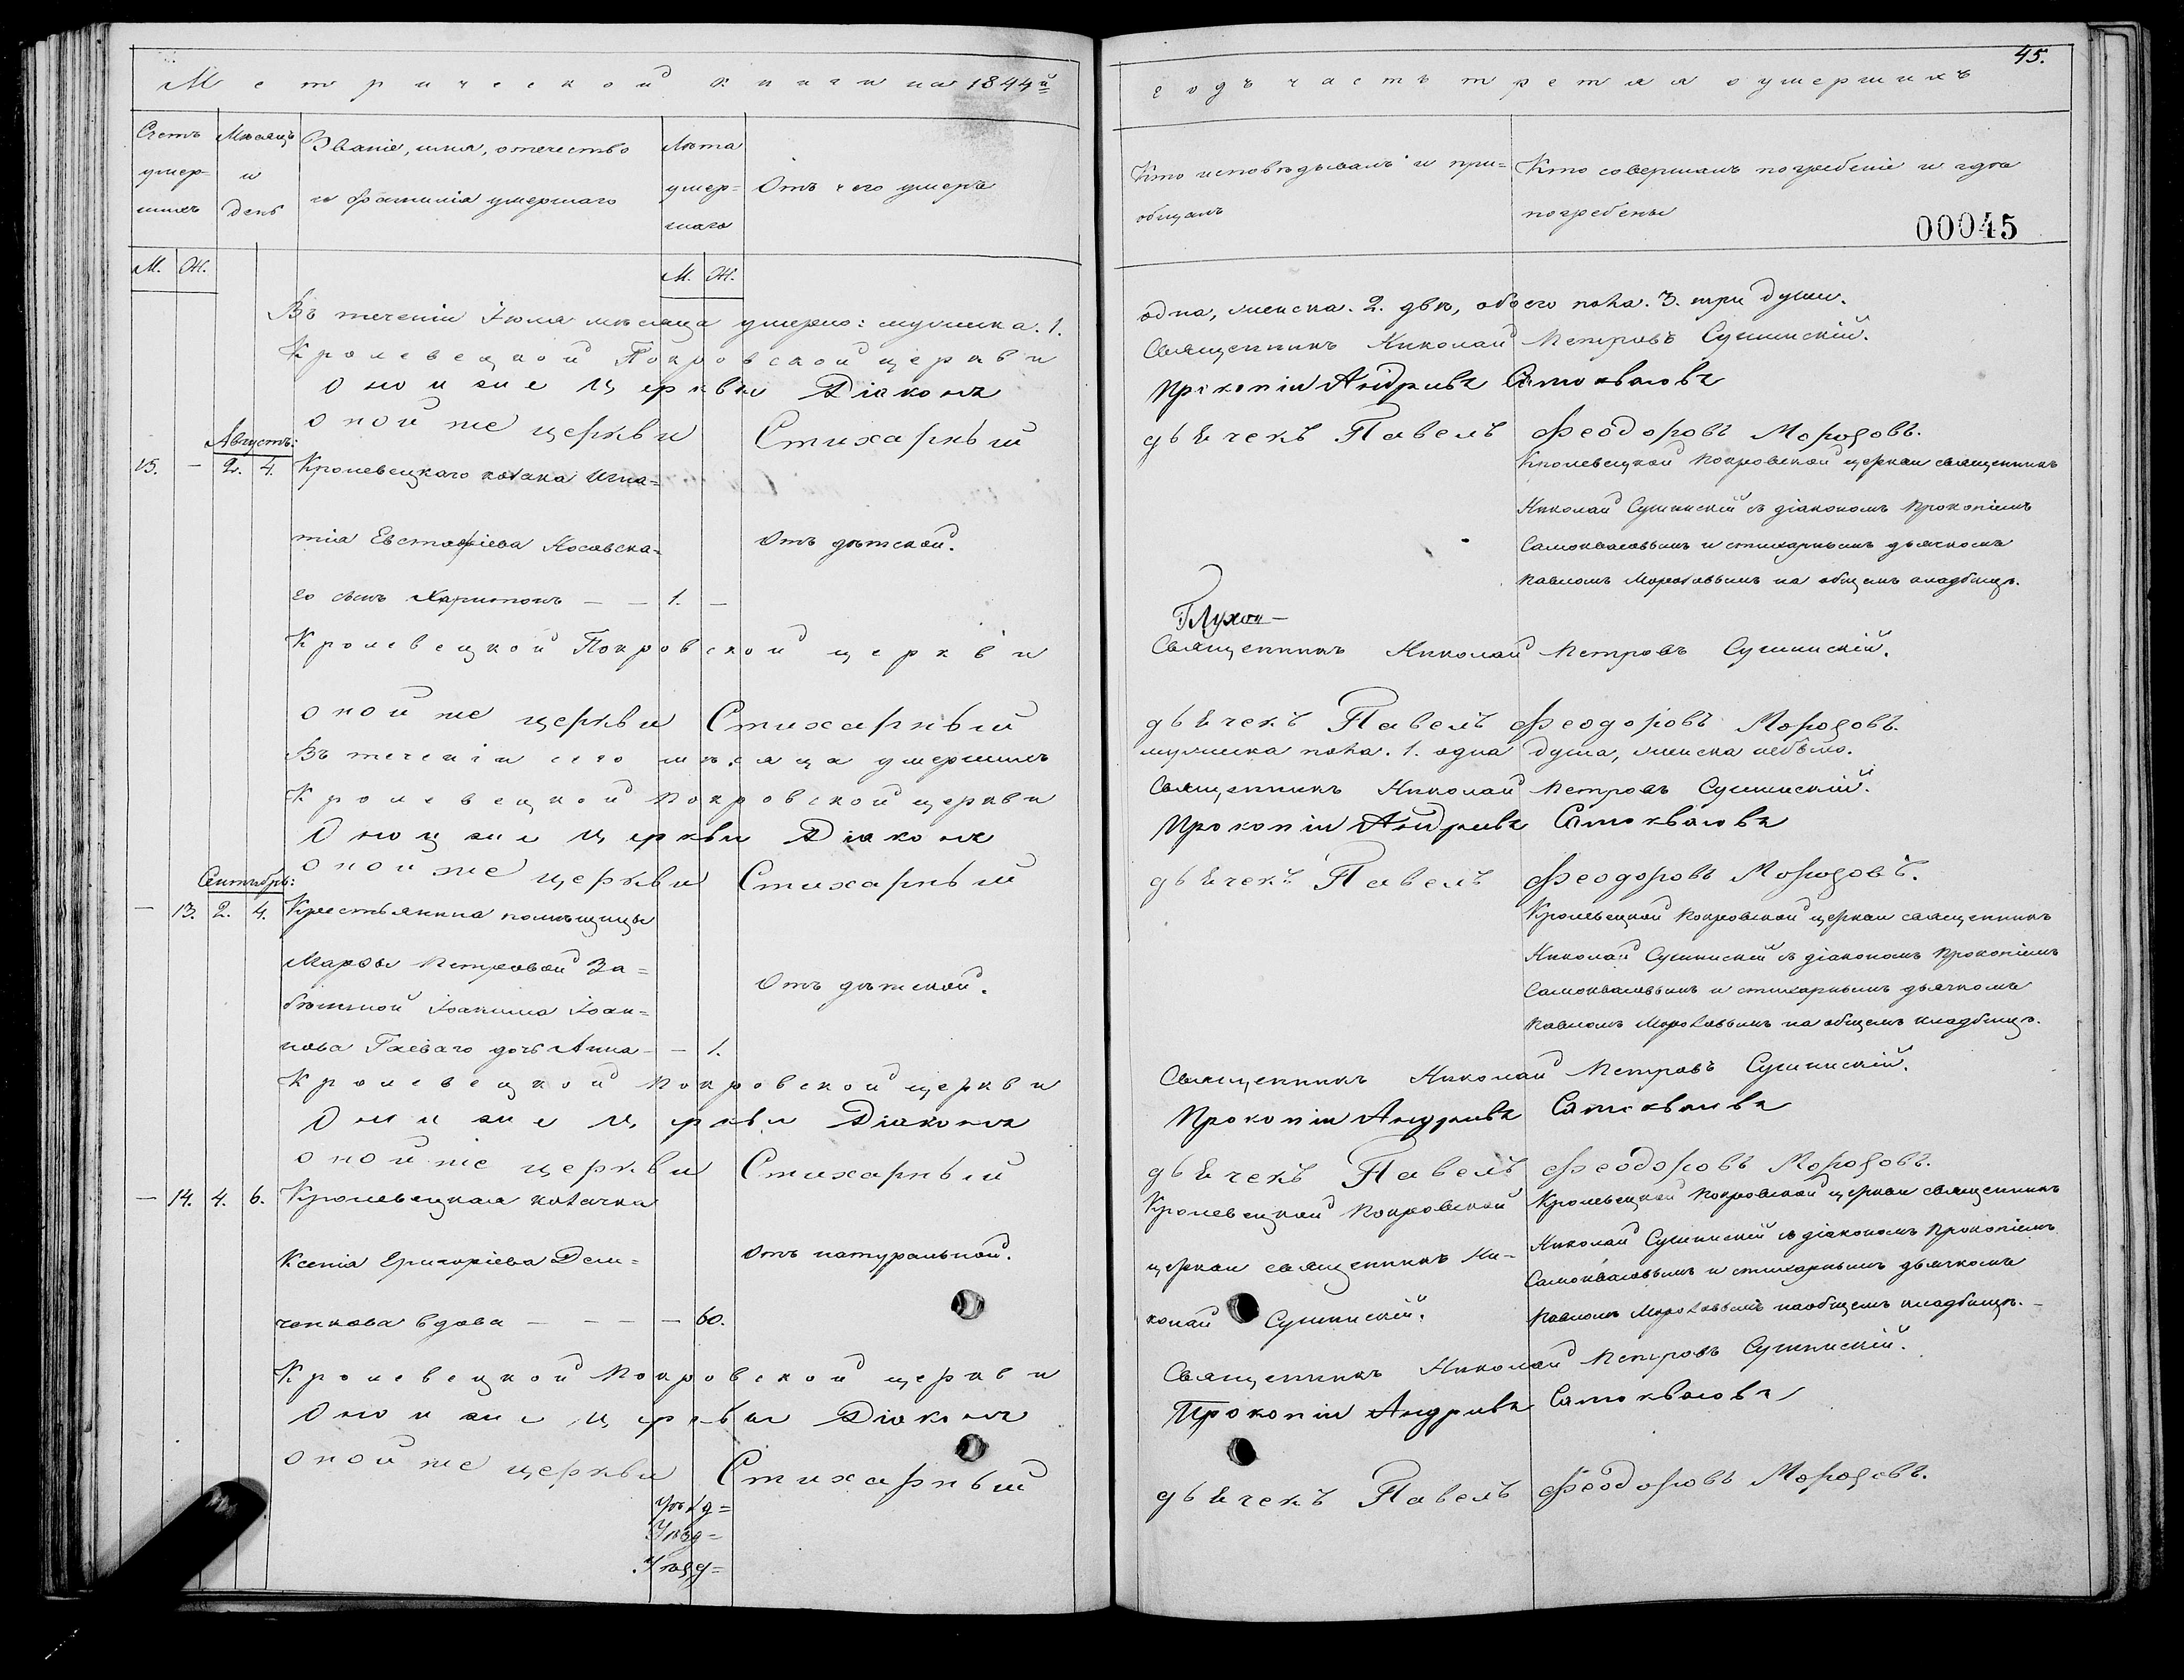 Метрической книги на 1844й
годъ часть третяя о умершихъ
45.
Счетъ умер-шихъ
Мѣсяцъ и день
Званіе, имя, отечество и фамилія умершаго
Лѣта умер=шаго
Отъ чего умеръ
Кто исповѣдывалъ и при=общалъ
Кто совершалъ погребеніе и гдѣ погребены
00045
М. Ж.
М. Ж.
Въ теченіи Іюля мѣсяца умерло: мужеска. 1. одна, женска. 2. двѣ, обоего пола. 3. три души.
Кролевецкой Покровской церкви Священникъ Николай Петровъ Сушинскій.
Оной же Церкви Діаконъ Прокопій Андріевъ Самоквасовъ
оной же церкви Стихарный дьячекъ Павелъ Феодоровъ Морозовъ.
Августъ:
15. — 2. 4. Кролевецкаго козака Игна=
тія Евстафіева Носовска=
го сынъ Харитонъ — — 1. —
Отъ дѣтской.
Кролевецкой Покровской церкви священникъ
Николай Сушинскій съ діакономъ Прокопіемъ
Самоквасовымъ и стихарнымъ дьячкомъ
Павломъ Морозовымъ на общемъ кладбищѣ.
Глухов—
Кролевецкой Покровской церкви Священникъ Николай Петровъ Сушинскій.
оной же церкви Стихарный дьячекъ Павелъ Феодоровъ Морозовъ.
Въ теченіи сего мѣсяца умершихъ мужеска пола. 1. одна душа, женска небыло.
Кролевецкой Покровской церкви Священникъ Николай Петровъ Сушинскій.
Оной же Церкви Діаконъ Прокопій Андріевъ Самоквасовъ
оной же церкви Стихарный дьячекъ Павелъ Феодоровъ Морозовъ.
Сентябрь:
— 13. 2. 4. Крестьянина помѣщицы
Марфы Петровой За=
бѣлиной Іоакима Іоан=
нова Гаеваго дочь Анна — — 1.
Отъ дѣтской.
Кролевецкой Покровской церкви священникъ
Николай Сушинскій съ діакономъ Прокопіемъ
Самоквасовымъ и стихарнымъ дьячкомъ
Павломъ Морозовымъ на общемъ кладбищѣ.
Кролевецкой Покровской церкви Священникъ Николай Петровъ Сушинскій.
Оной же Церкви Діаконъ Прокопій Андріевъ Самоквасовъ
оной же церкви Стихарный дьячекъ Павелъ Феодоровъ Морозовъ.
— 14. 4. 6. Кролевецкая козачка
Ксенія Григоріева Дем=
ченкова вдова — — — — 60.
Отъ натуральной.
Кролевецкой Покровской
церкви священникъ Ни-
колай Сушинскій.
Кролевецкой Покровской церкви священникъ
Николай Сушинскій съ діакономъ Прокопіемъ
Самоквасовымъ и стихарнымъ дьячкомъ
Павломъ Морозовымъ наобщемъ кладбищѣ.—
Кролевецкой Покровской церкви Священникъ Николай Петровъ Сушинскій.
Оной же Церкви Діаконъ Прокопій Андріевъ Самоквасовъ
оной же церкви Стихарный дьячекъ Павелъ Феодоровъ Морозовъ.
Уѣзд=
Уѣзд=
Уѣзд=